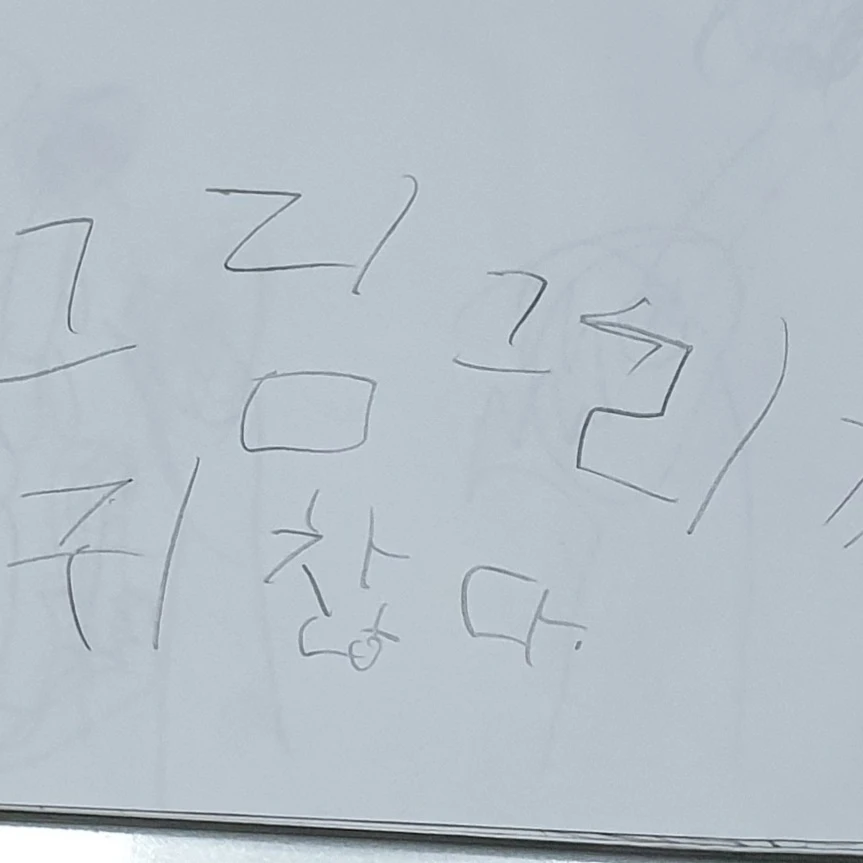 그림 그리기
귀찮다.